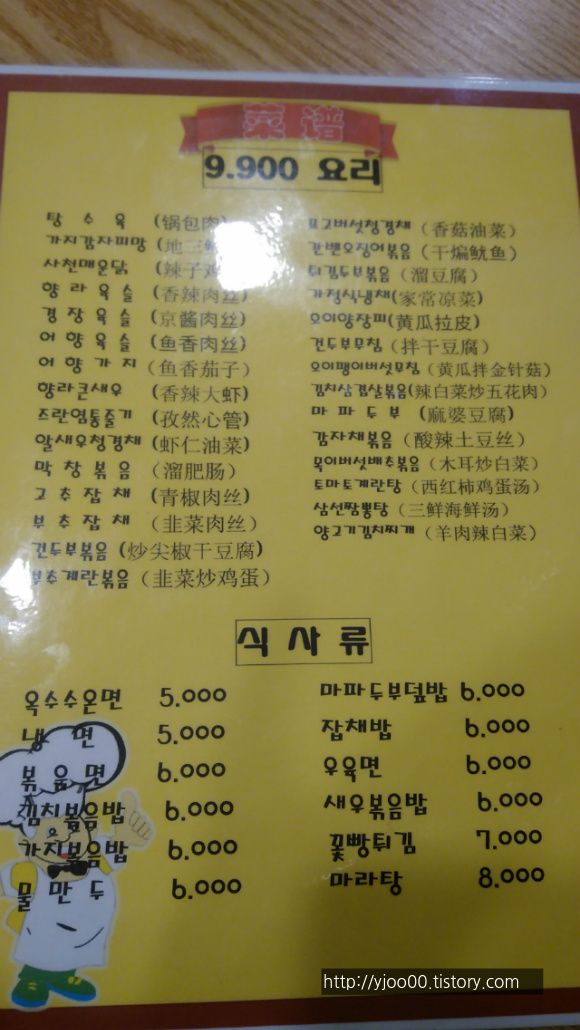 菜谱
9.900 요리
탕수육 (锅包肉)
가지감자피망 (地三鲜
사천매운닭 (辣子鸡
향라육슬 (香辣肉丝)
경장육슬 (京酱肉丝)
어향육슬 (鱼香肉丝)
어향가지 (鱼香茄子)
향라큰새우 (香辣大虾)
즈란염통줄기 (孜然心管)
알새우청경채 (虾仁油菜)
막창볶음 (溜肥肠)
고추잡채 (青椒肉丝)
부추잡채 (韭菜肉丝)
건두부볶음 (炒尖椒干豆腐)
부추계란볶음 (韭菜炒鸡蛋)
표고버섯청경채 (香菇油菜)
간밴오징어볶음 (干煸鱿鱼)
튀김두부볶음 (溜豆腐)
가정식냉채(家常凉菜)
오이양장피(黄瓜拉皮)
건두부무침 (拌干豆腐)
오이팽이버섯무침 (黄瓜拌金针菇)
김치삼겹살볶음(辣白菜炒五花肉)
마파두부 (麻婆豆腐)
감자채볶음 (酸辣土豆丝)
목이버섯배추볶음 (木耳炒白菜)
토마토계란탕 (西红柿鸡蛋汤)
삼선짬뽕탕 (三鲜海鲜汤)
양고기김치찌개 (羊肉辣白菜)
식사류
옥수수온면 5.000
냉면 5.000
볶음면 6.000
김치볶음밥 6.000
가지볶음밥 6.000
물만두 6.000
마파두부덮밥 6.000
잡채밥 6.000
우육면 6.000
새우볶음밥 6.000
꽃빵튀김 7.000
마라탕 8.000
http://yjoo00.tistory.com